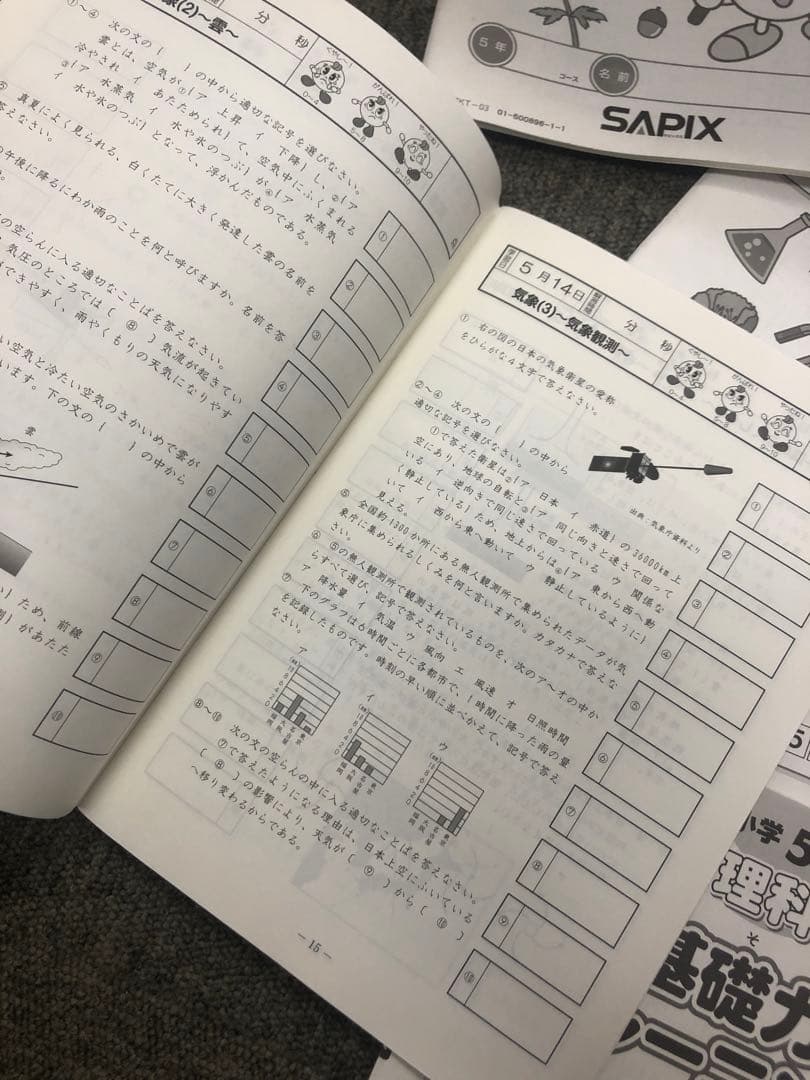 象(2)~雲~
分 秒
くやし~!
0~4
がんばれ!
5~8
やったね!
9~10
①~④ 次の文の〔 〕の中から適切な記号を選びなさい。
雲とは、空気が①〔ア 上昇 イ 下降〕し、②〔ア
冷やされ イ あたためられ〕て、空気中にふくまれる
③〔ア 水蒸気 イ 水や氷のつぶ〕が④〔ア 水蒸気
イ 水や氷のつぶ〕となって、浮かんだものである。
⑤ 真夏によく見られる、白くたてに大きく発達した雲の名前を
答えなさい。
の午後に降るにわか雨のことを何と呼びますか。名前を答
の空らんに入る適切なことばを答えなさい。
気圧のところでは( ⑧ )気流が起きてい
できやすく、雨やくもりの天気になりやす
い空気と冷たい空気のさかいめで雲が
います。下の文の〔 〕の中から
雲
〕ため、前線
側〕があたた
①
②
③
④
⑤
⑥
⑦
⑧
⑨
⑩
5月14日
分 秒
気象(3)~気象観測~
くやし~!
0~4
がんばれ!
5~8
やったね!
9~10
① 右の図の日本の気象衛星の愛称
をひらがな4文字で答えなさい。
出典:気象庁資料より
②~④ 次の文の〔 〕の中から
適切な記号を選びなさい。
①で答えた衛星は②〔ア 日本 イ 赤道〕の36000km上
空にあり、地球の自転と③〔ア 同じ向きと速さで回って
いる イ 逆向きで同じ速さで回っている ウ 関係な
く静止している〕ため、地上からは④〔ア 東から西へ動
いて イ 西から東へ動いて ウ 静止しているように〕
見える。
⑤ 全国約1300か所にある無人観測所で集められたデータが気
象庁に集められるしくみを何と言いますか。カタカナで答えな
さい。
⑥ ⑤の無人観測所で観測されているものを、次のア~オの中か
らすべて選び、記号で答えなさい。
ア 降水量 イ 気温 ウ 風向 エ 風速 オ 日照時間
⑦ 下のグラフは6時間ごとに各都市で、1時間に降った雨の量
を記録したものです。時刻の早い順に並べかえて、記号で答え
なさい。
ア
福岡 大阪 名古屋 東京
イ
福岡 大阪 名古屋 東京
ウ
福岡 大阪 名古屋 東京
⑧~⑩ 次の文の空らんの中に入る適切なことばを答えなさい。
⑦で答えたようになる理由は、日本上空にふいている
( ⑧ )の影響により、天気が( ⑨ )から( ⑩ )
へ移り変わるからである。
①
②
③
④
⑤
⑥
⑦
⑧
⑨
⑩
-15-
5年
コース
名前
01-500896-1-1
SAPIX
小学5
理科
そ
基礎力